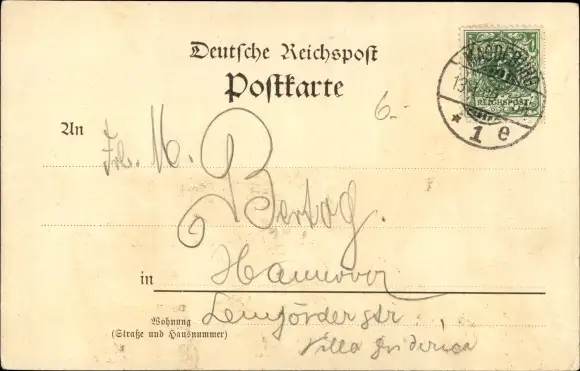 Deutsche Reichspost
Postkarte
MAGDEBURG
REICHSPOST
* 1 e
6.-
An Frl. M. Bertog.
in Hannover
Wohnung
(Straße und Hausnummer)
Lemförderstr.
Villa Friderica